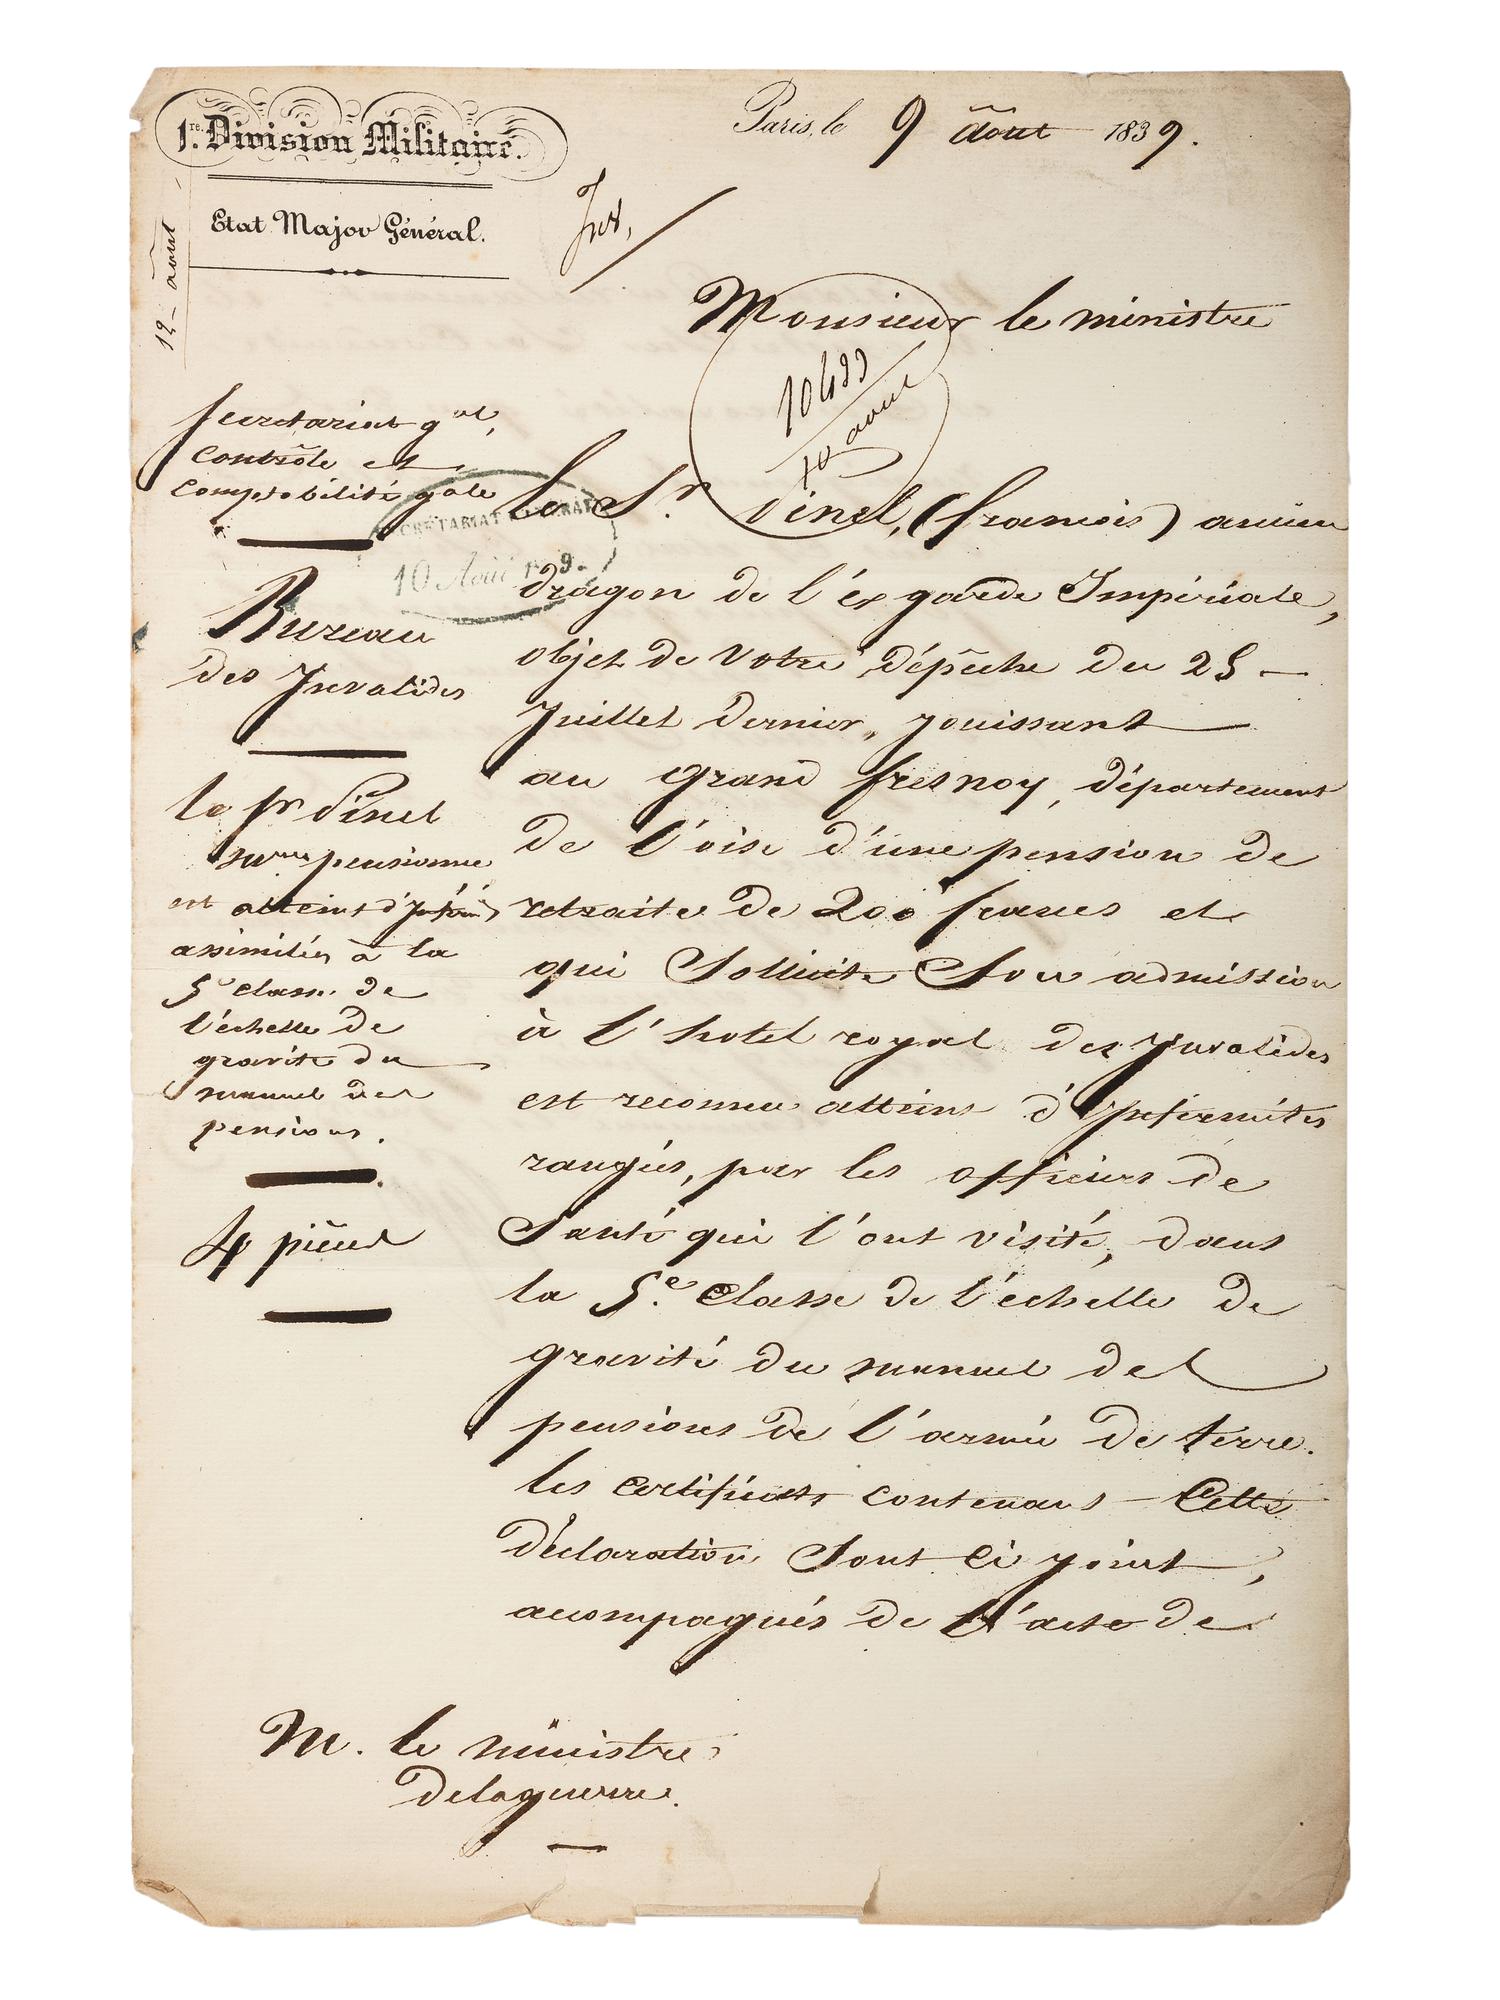 1re. Division Militaire.
Etat Major Général.
Paris, le 9 août 1839.
12 - août -
Monsieur le ministre
10 août
Secretariat gal,
Contrôle et
Comptabilité gale
SECRÉTARIAT GÉNÉRAL
10 Août 1839.
Bureau
des Invalides
le Sr dinel
pensionné
est atteint d'Infirmités
assimilées à la
5e classe de
l'échelle de
gravité du
manuel des
pensions.
4 pièces
le Sr. dinel, (françois) ancien
dragon de l'éx garde Impériale,
objet de votre dépêche du 25 -
Juillet dernier, jouissant
au grand fresnoy, département
de l'oise d'une pension de
retraite de 200 francs et
qui Sollicite Son admission
à l'hotel royal des Invalides
est reconnu atteint d'Infirmités
rangées, par les officiers de
Santé qui l'ont visité, dans
la 5e. Classe de l'échelle de
gravité du manuel des
pensions de l'armée de terre.
les certificats contenant Cette
déclaration Sont ci joint,
acompagnés de l'acte de
M. le ministre
delaguerre.